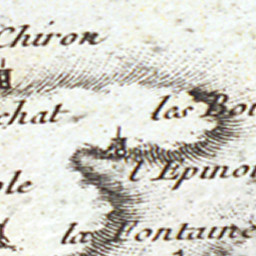 Chiron
chat
les Bou
l'Epinou
ole
la Fontaine